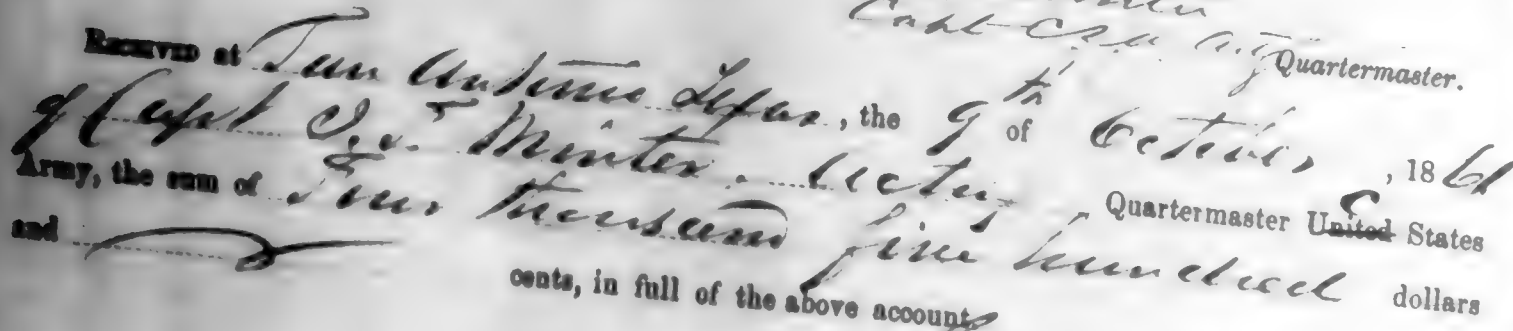 Capt C.S. Quartermaster.
Received at San Antonio Texas, the 9th of October, 1861
of Capt J. F. Minter. Acting Quartermaster C United States
Army, the sum of Four thousand five hundred dollars
and cents, in full of the above account